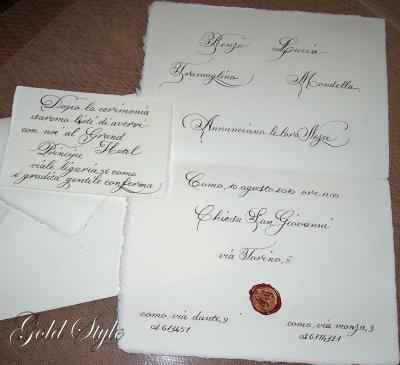 Renzo Lucia
Tramaglino Mondella
Annunciano le loro Nozze
Como, 10 agosto 2010 ore 11.00
Chiesa San Giovanni
via Torino,
como, via dante, 9 como, via monza, 3
Dopo la cerimonia
saremo lieti di avervi
con noi al Grand
Principe Hotel
viale liguria, 30 como
è gradita gentile conferma
Gold Style